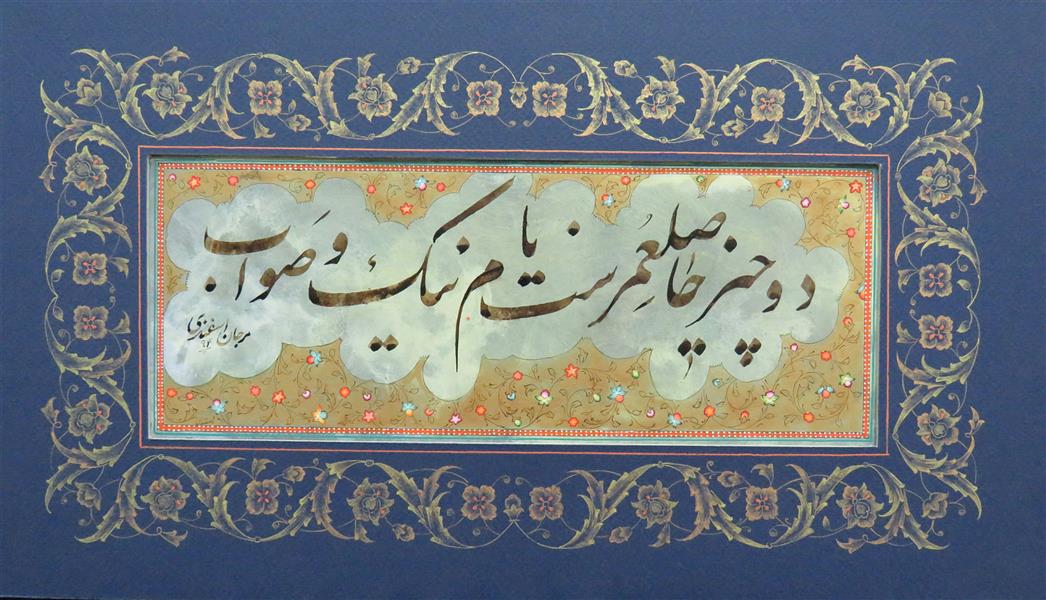 دو چیز حاصل عمرست نام نیک و صواب
مرجان اسفندی